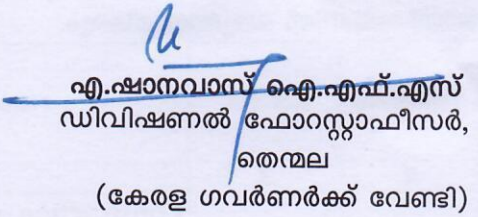 എ.ഷാനവാസ് ഐ.എഫ്.എസ്
ഡിവിഷണൽ ഫോറസ്റ്റാഫീസർ,
തെന്മല
(കേരള ഗവർണർക്ക് വേണ്ടി)